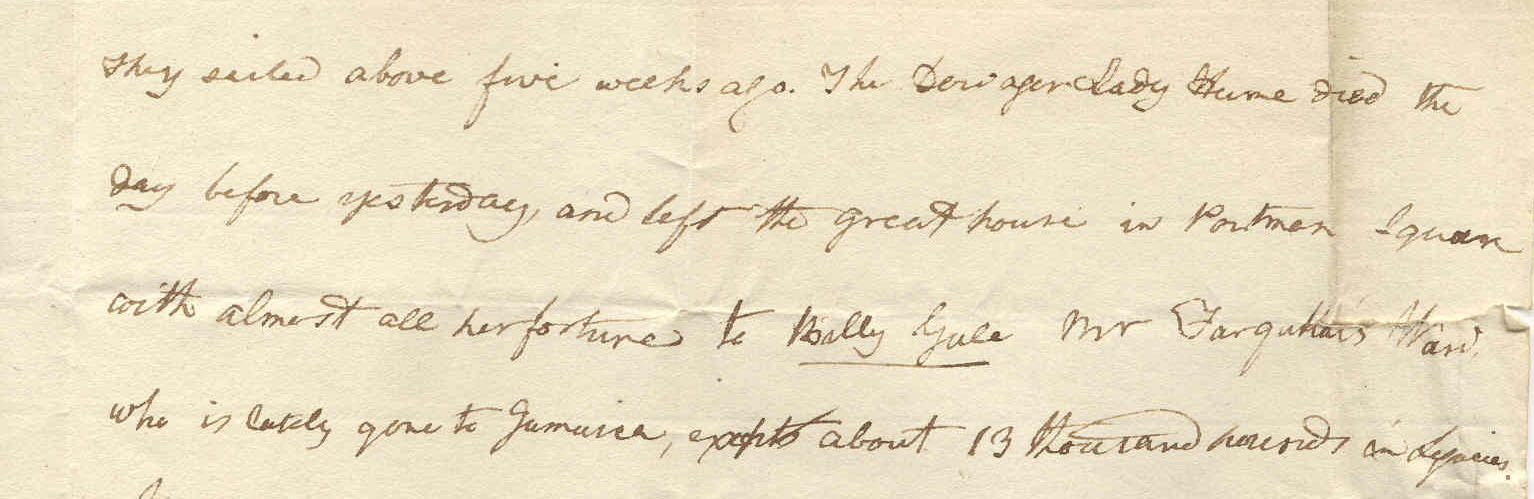 They sailed above five weeks ago. The Dowager Lady Hume died the
day before yesterday, and left the great house in Portman Square
with almost all her fortune to Billy Gale Mr Farquhar's Ward,
who is lately gone to Jamaica, except about 13 thousand pounds in Legacies.